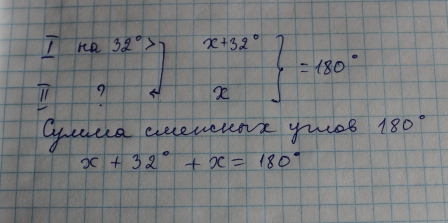 I на 32° > x+32°
II ? x = 180°
Сумма смежных углов 180°
x + 32° + x = 180°